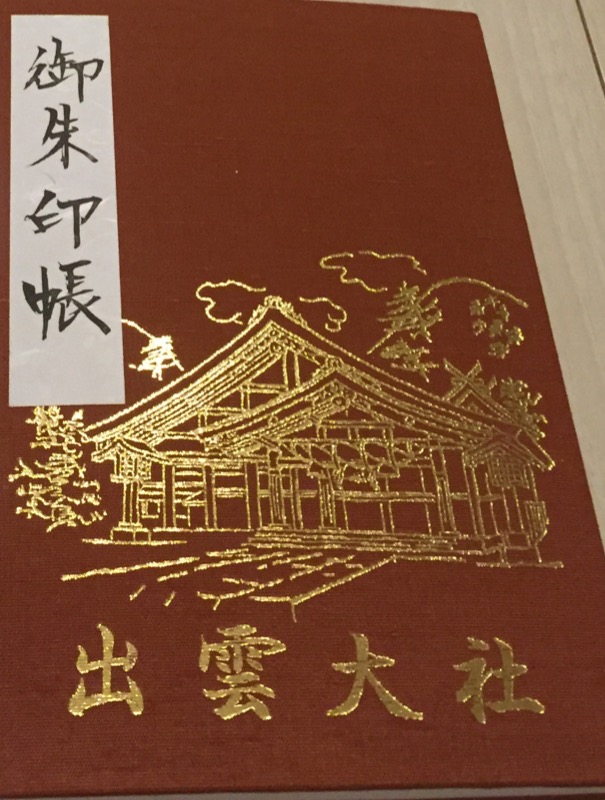 御朱印帳
出雲大社